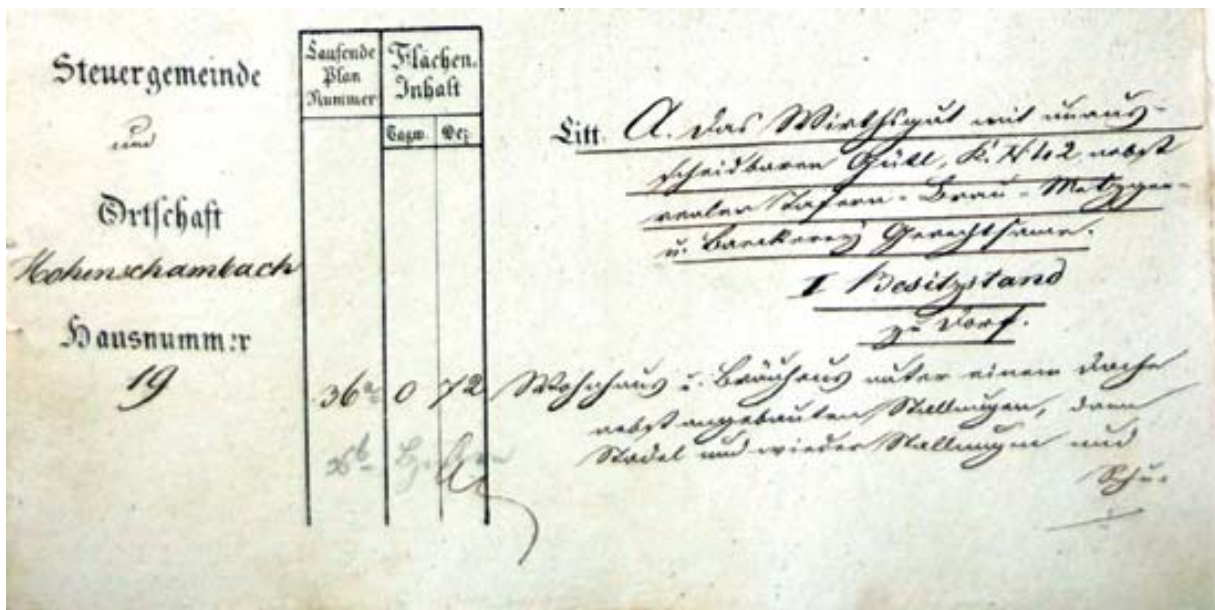 Steuergemeinde
und
Ortschaft
Hohenschambach
Hausnummer
19
Laufende
Plan
Nummer
Flächen-
Inhalt
Tagw. Dez.
Litt. A. das Wirthsgut mit unaus-
scheidbaren Gütl, K. № 2 nebst
realer Tafern- Brau- Metzger-
u. Baeckerey Gerechtsame.
I Besitzstand
zu Dorf.
36a 0 72 Wohnhaus u. Bräuhaus unter einem Dache
nebst angebauten Stallungen, dann
Stadel und wieder Stallungen und
Schu-